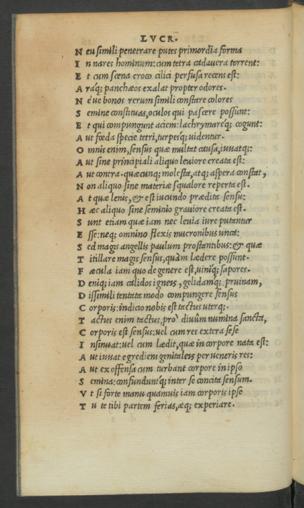 LVCR.
N eu simili penetrare putes primordia forma
I n nares hominum: cum tetra cadauera torrent:
E t cum scena croco cilici perfusa recens est:
A raq; panchæos exalat propter odores.
N éue bonos rerum simili constare colores
S emine constituas, oculos qui pascere possunt:
E t qui compungunt aciem: lachrymareq; cogunt:
A ut fœda specie tetri, turpesq; uidentur.
O mnis enim, sensus quæ mulcet causa, iuuatq;:
A ut sine principiali aliquo leuiore creata est:
A ut contra. quæcunq; molesta, atq; aspera constat,
N on aliquo sine materiæ squalore reperta est.
A t quæ leuis, & est iucundo prædita sensu:
H æc aliquo sine seminio grauiore creata est.
S unt etiam quæ iam nec leuia iure putentur
E sse: neq; omnino flexis mucronibus unca:
S ed magis angellis paulum prostantibus: & quæ
T itillare magis sensus, quàm lædere possunt.
F æcula iam quo de genere est, uiniq; sapores.
D eniq; iam calidos ignes, gelidamq; pruinam,
D issimili tentata modo compungere sensus
C orporis: indicio nobis est tactus uterq;.
T actus enim tactus, pro' diuûm numina sancta,
C orporis est sensus: uel cum res extera sese
I nsinuat: uel cum lædit, quæ in corpore nata est:
A ut iuuat egrediens genitaleis per ueneris res:
A ut ex offensa cum turbant corpore in ipso
S emina: confunduntq; inter se concita sensum.
V t si forte manu quamuis iam corporis ipse
T u te tibi partem ferias, æq; experiare.